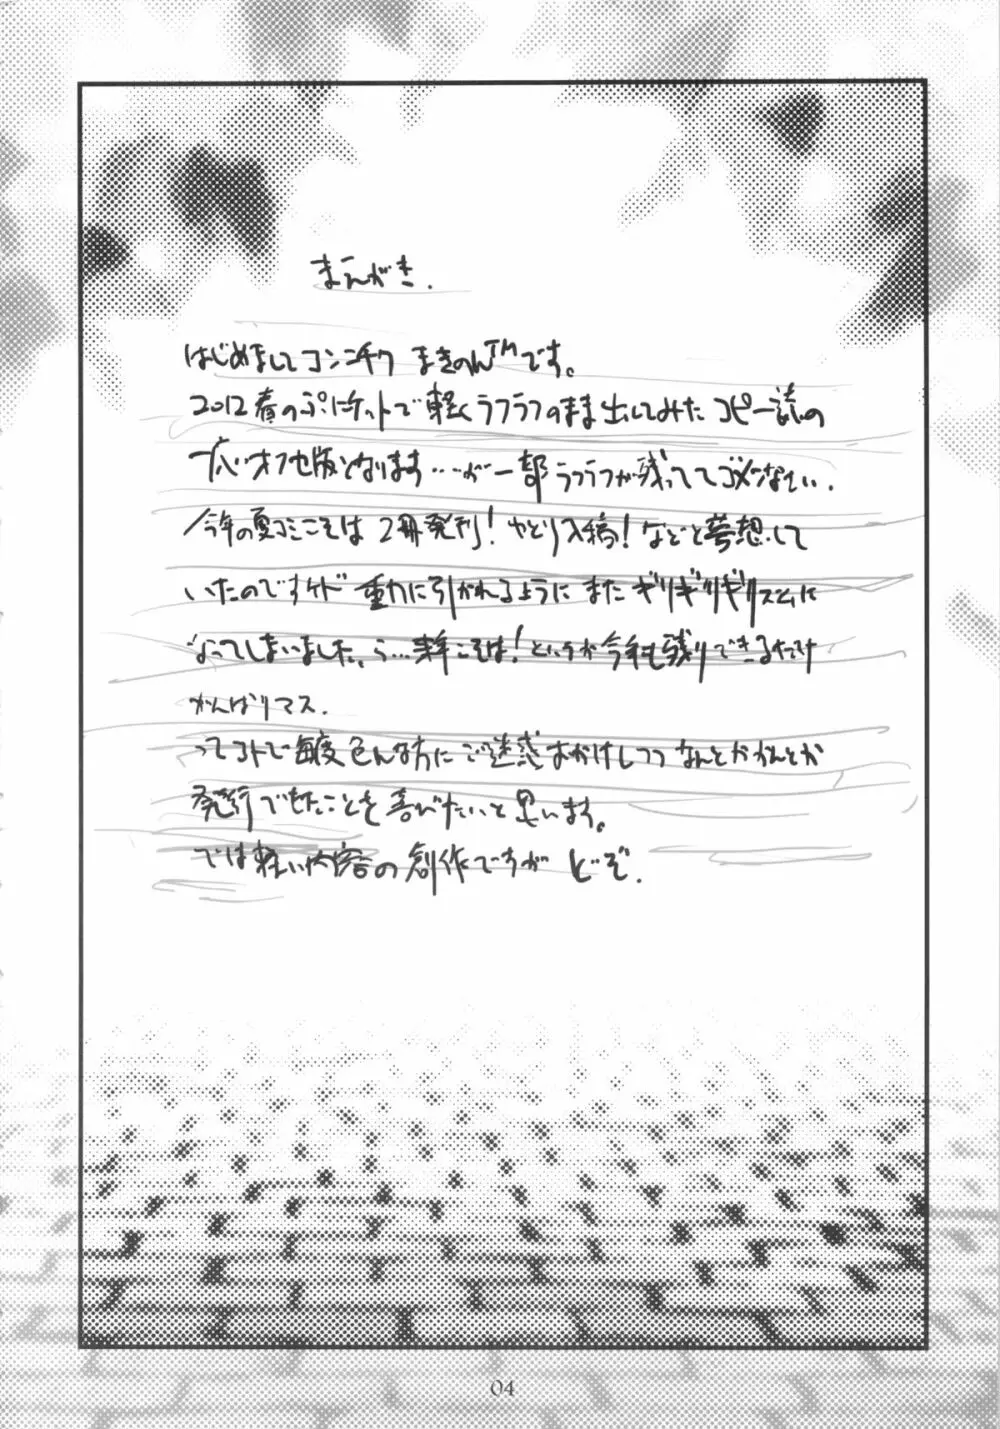 まえがき.
はじめましてコンニチワ まきのんTMです。
2012春のぷにケットで軽くラフラフのまま出してみた コピー誌の
オフセ版となります……が一部ラフラフが残っててゴメンなさい.
今年の夏コミこそは 2冊発刊! ゆとり入稿! などと夢想して
いたのですケド 重力に引かれるように またギリギリギリズムに
なってしまいました。ら…来年こそは! というか今年も残りできるだけ
がんばりマス.
ってコトで毎度色んな方にご迷惑おかけしつつ なんとかかんとか
発行できたことを喜びたいと思います。
では軽い内容の創作ですが どーぞ.
04